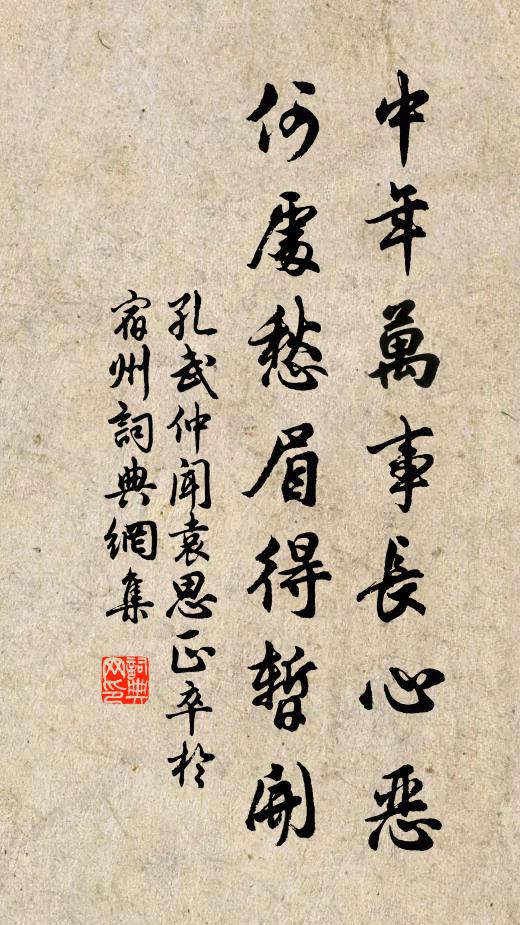 中年萬事長心惡
何處愁眉得暫開
孔武仲聞袁思正卒於
宿州詞典網集
詞典网印